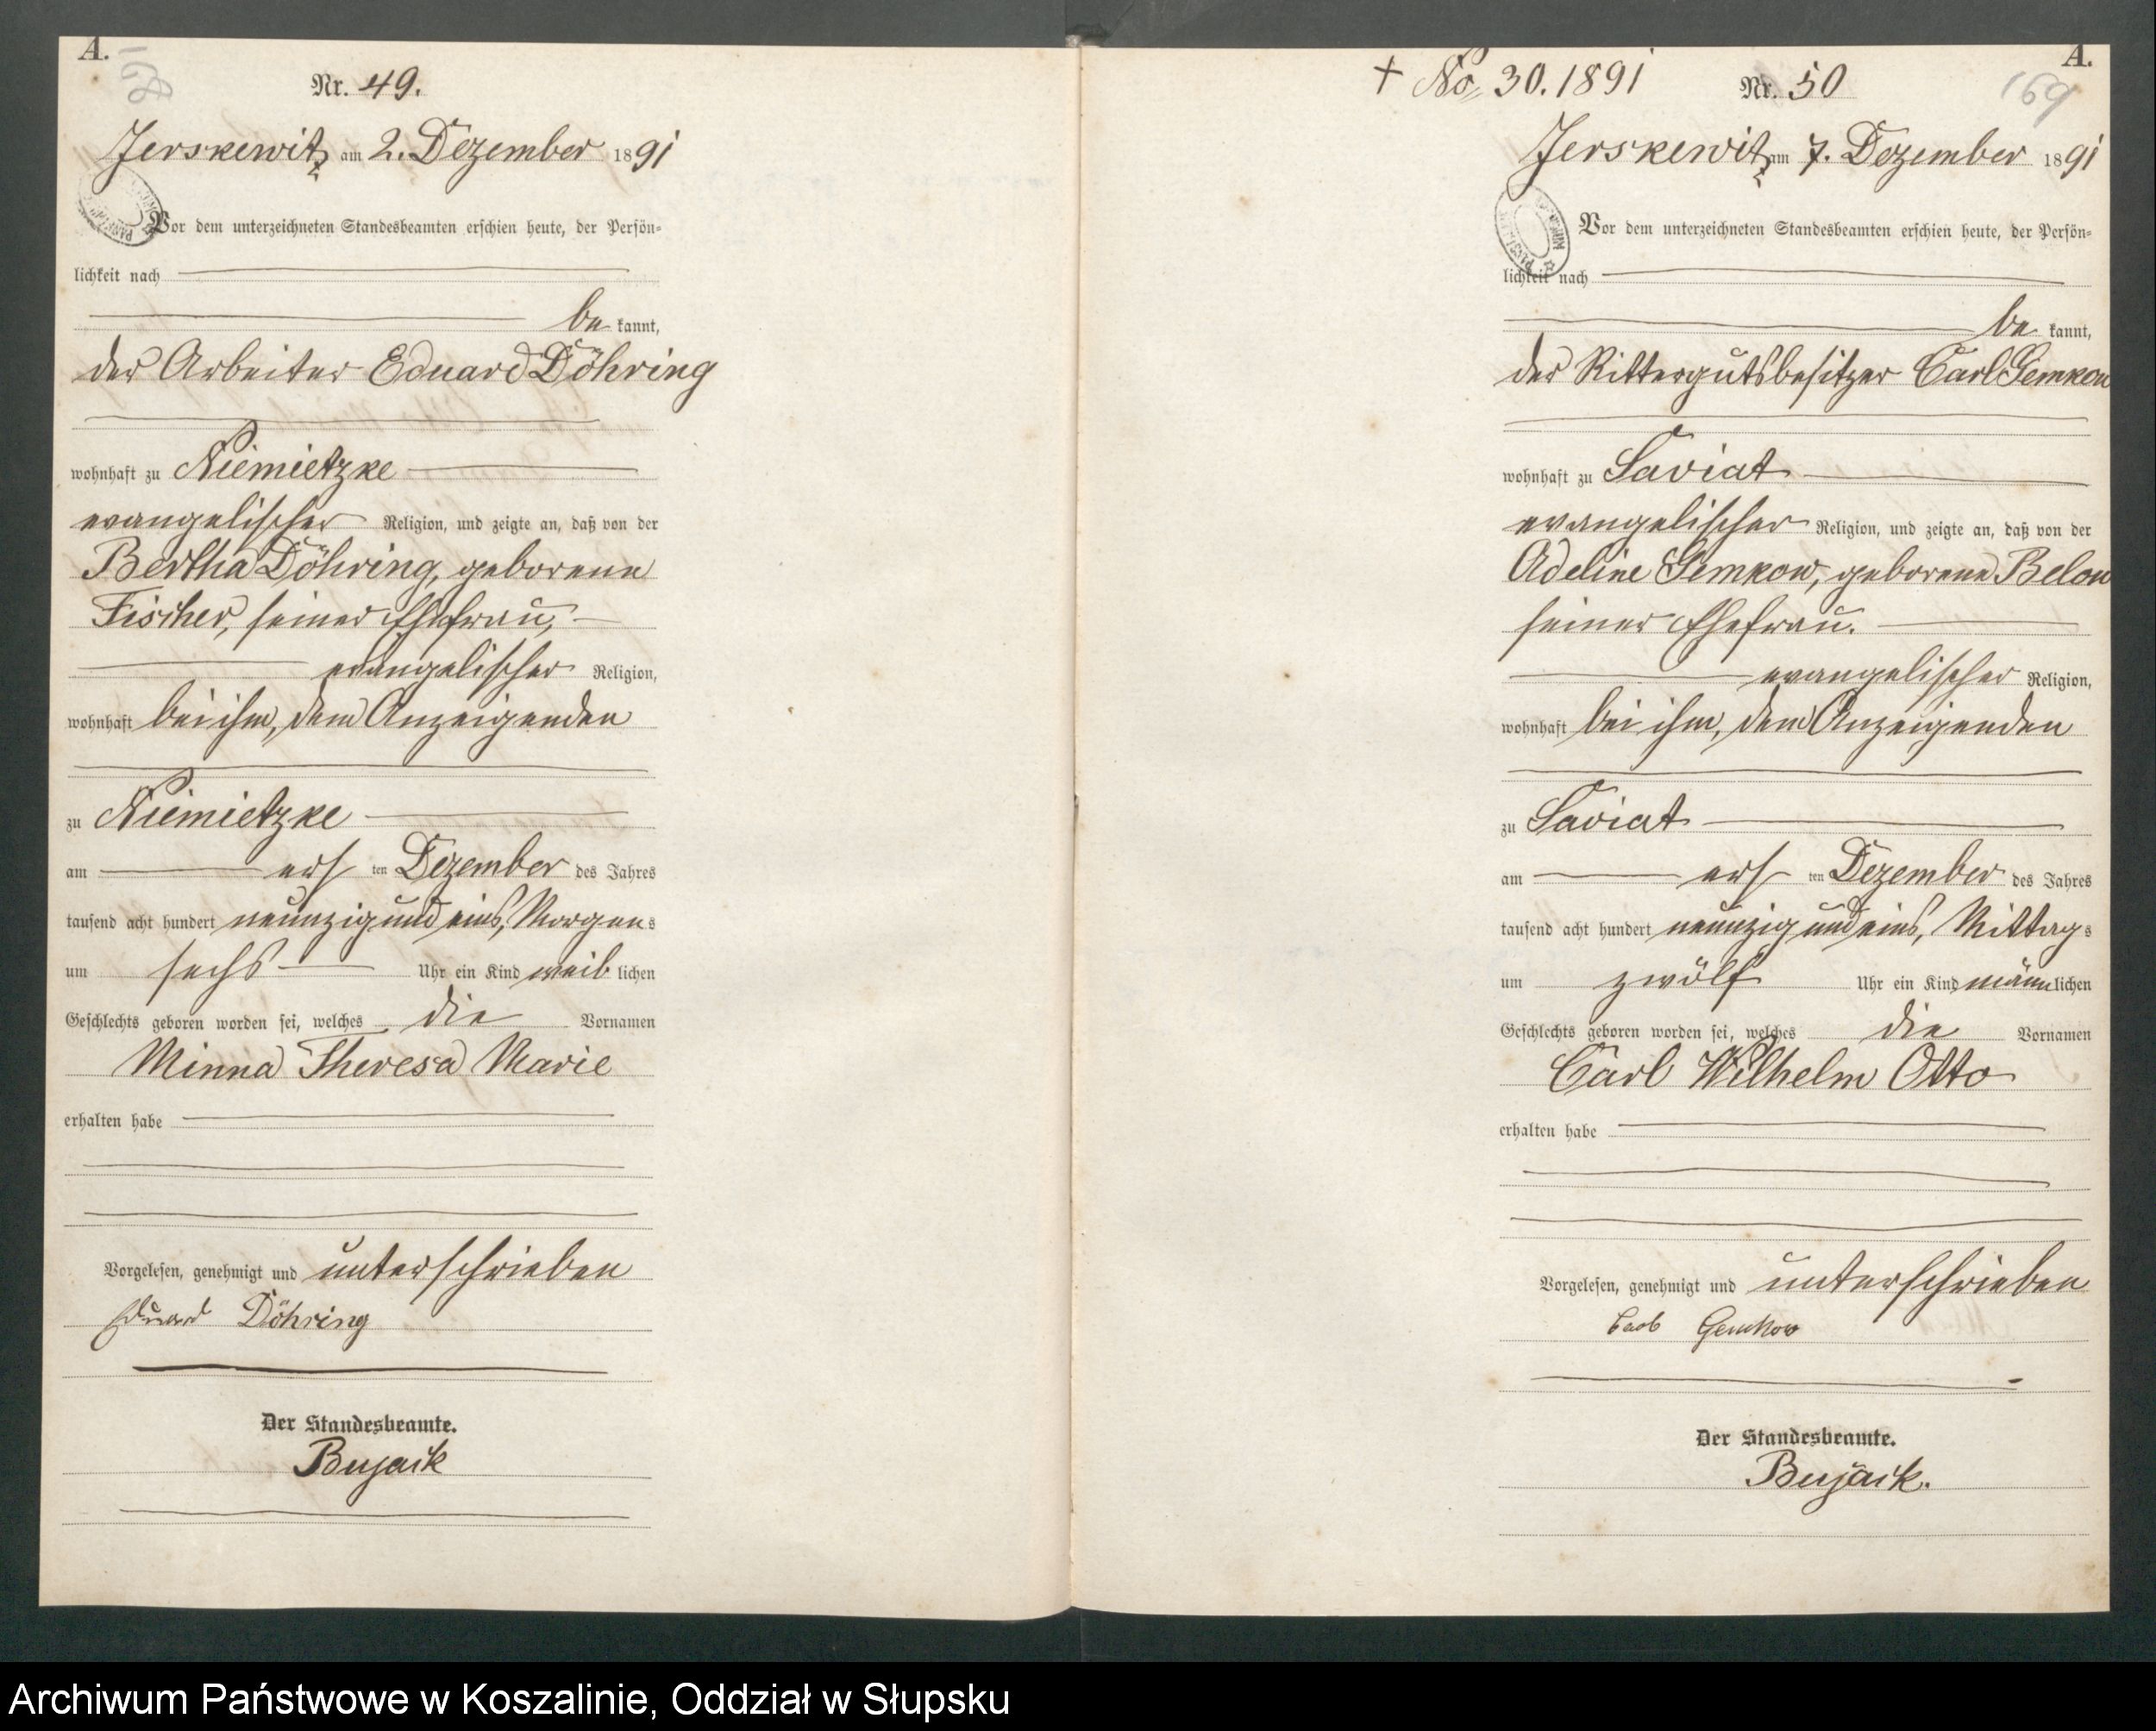 A.
Nr. 49.
Jerskewitz am 2. Dezember 1891
Vor dem unterzeichneten Standesbeamten erschien heute, der Persön-
lichkeit nach
be kannt,
der Arbeiter Eduard Döhring
wohnhaft zu Niemietzke
evangelischer Religion, und zeigte an, daß von der
Bertha Döhring, geborene
Fischer, seiner Ehefrau,
evangelischer Religion,
wohnhaft bei ihm, dem Anzeigenden
zu Niemietzke
am ers ten Dezember des Jahres
tausend acht hundert neunzig und eins, Morgens
um sechs Uhr ein Kind weib lichen
Geschlechts geboren worden sei, welches die Vornamen
Minna Theresa Marie
erhalten habe
Vorgelesen, genehmigt und unterschrieben
Eduard Döhring
Der Standesbeamte.
Bujack
A.
169
+ No. 30. 1891 Nr. 50
Jerskewitz am 7. Dezember 1891
Vor dem unterzeichneten Standesbeamten erschien heute, der Persön-
lichkeit nach
be kannt,
der Rittergutsbesitzer Carl Gemkow
wohnhaft zu Saviat
evangelischer Religion, und zeigte an, daß von der
Adeline Gemkow, geborene Below
seiner Ehefrau.
evangelischer Religion,
wohnhaft bei ihm, dem Anzeigenden
zu Saviat
am ers ten Dezember des Jahres
tausend acht hundert neunzig und eins, Mittags
um zwölf Uhr ein Kind männlichen
Geschlechts geboren worden sei, welches die Vornamen
Carl Wilhelm Otto
erhalten habe
Vorgelesen, genehmigt und unterschrieben
Carl Gemkow
Der Standesbeamte.
Bujack.
Archiwum Państwowe w Koszalinie, Oddział w Słupsku